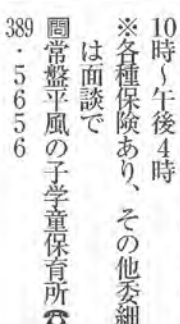 10時～午後4時
※各種保険あり、その他委細
は面談で
問常盤平風の子学童保育所☎
389・5656